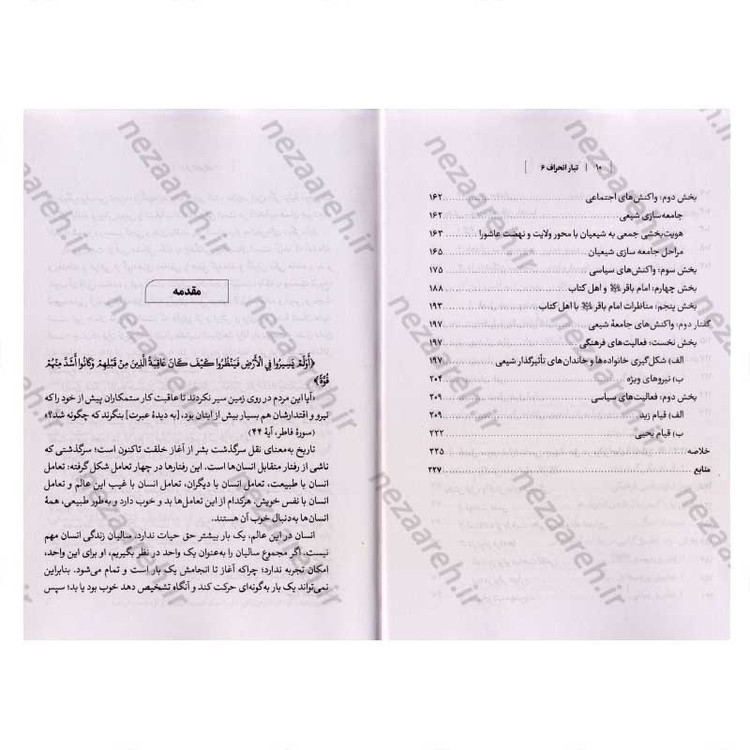 ۱۰ | تبار انحراف ۶
بخش دوم: واکنش‌های اجتماعی ۱۶۲
جامعه‌سازی شیعی ۱۶۲
هویت‌بخشی جمعی به شیعیان با محور ولایت و نهضت عاشورا ۱۶۳
مراحل جامعه سازی شیعیان ۱۶۵
بخش سوم: واکنش‌های سیاسی ۱۷۵
بخش چهارم: امام باقر و اهل کتاب ۱۸۸
بخش پنجم: مناظرات امام باقر با اهل کتاب ۱۹۳
گفتار دوم: واکنش‌های جامعهٔ شیعی ۱۹۷
بخش نخست: فعالیت‌های فرهنگی ۱۹۷
الف) شکل‌گیری خانواده‌ها و خاندان‌های تأثیرگذار شیعی ۱۹۷
ب) نیروهای ویژه ۲۰۴
بخش دوم: فعالیت‌های سیاسی ۲۰۹
الف) قیام زید ۲۰۹
ب) قیام یحیی ۲۲۲
خلاصه ۲۲۵
منابع ۲۲۷
مقدمه
﴿أَوَلَمْ يَسِيرُوا فِي الْأَرْضِ فَيَنْظُرُوا كَيْفَ كَانَ عَاقِبَةُ الَّذِينَ مِنْ قَبْلِهِمْ وَكَانُوا أَشَدَّ مِنْهُمْ
قُوَّةً﴾
«آیا این مردم در روی زمین سیر نکردند تا عاقبت کار ستمکاران پیش از خود را که
نیرو و اقتدارشان هم بسیار بیش از اینان بود، [به دیدهٔ عبرت] بنگرند که چگونه شد؟»
(سورهٔ فاطر، آیهٔ ۴۴)
تاریخ به‌معنای نقل سرگذشت بشر از آغاز خلقت تاکنون است؛ سرگذشتی که
ناشی از رفتار متقابل انسان‌ها است. این رفتارها در چهار تعامل شکل گرفته: تعامل
انسان با طبیعت، تعامل انسان با دیگران، تعامل انسان با غیب این عالم و تعامل
انسان با نفس خویش. هرکدام از این تعامل‌ها بد و خوب دارد و به‌طور طبیعی، همهٔ
انسان‌ها به‌دنبال خوب آن هستند.
انسان در این عالم، یک بار بیشتر حق حیات ندارد. سالیان زندگی انسان مهم
نیست. اگر مجموع سالیان را به‌عنوان یک واحد در نظر بگیریم، او برای این واحد،
امکان تجربه ندارد؛ چراکه آغاز تا انجامش یک بار است و تمام می‌شود. بنابراین
نمی‌تواند یک بار به‌گونه‌ای حرکت کند و آنگاه تشخیص دهد خوب بود یا بد؛ سپس
nezaareh.ir
nezaareh.ir
nezaareh.ir
nezaareh.ir
nezaareh.ir
nezaareh.ir
nezaareh.ir
nezaareh.ir
nezaareh.ir
nezaareh.ir